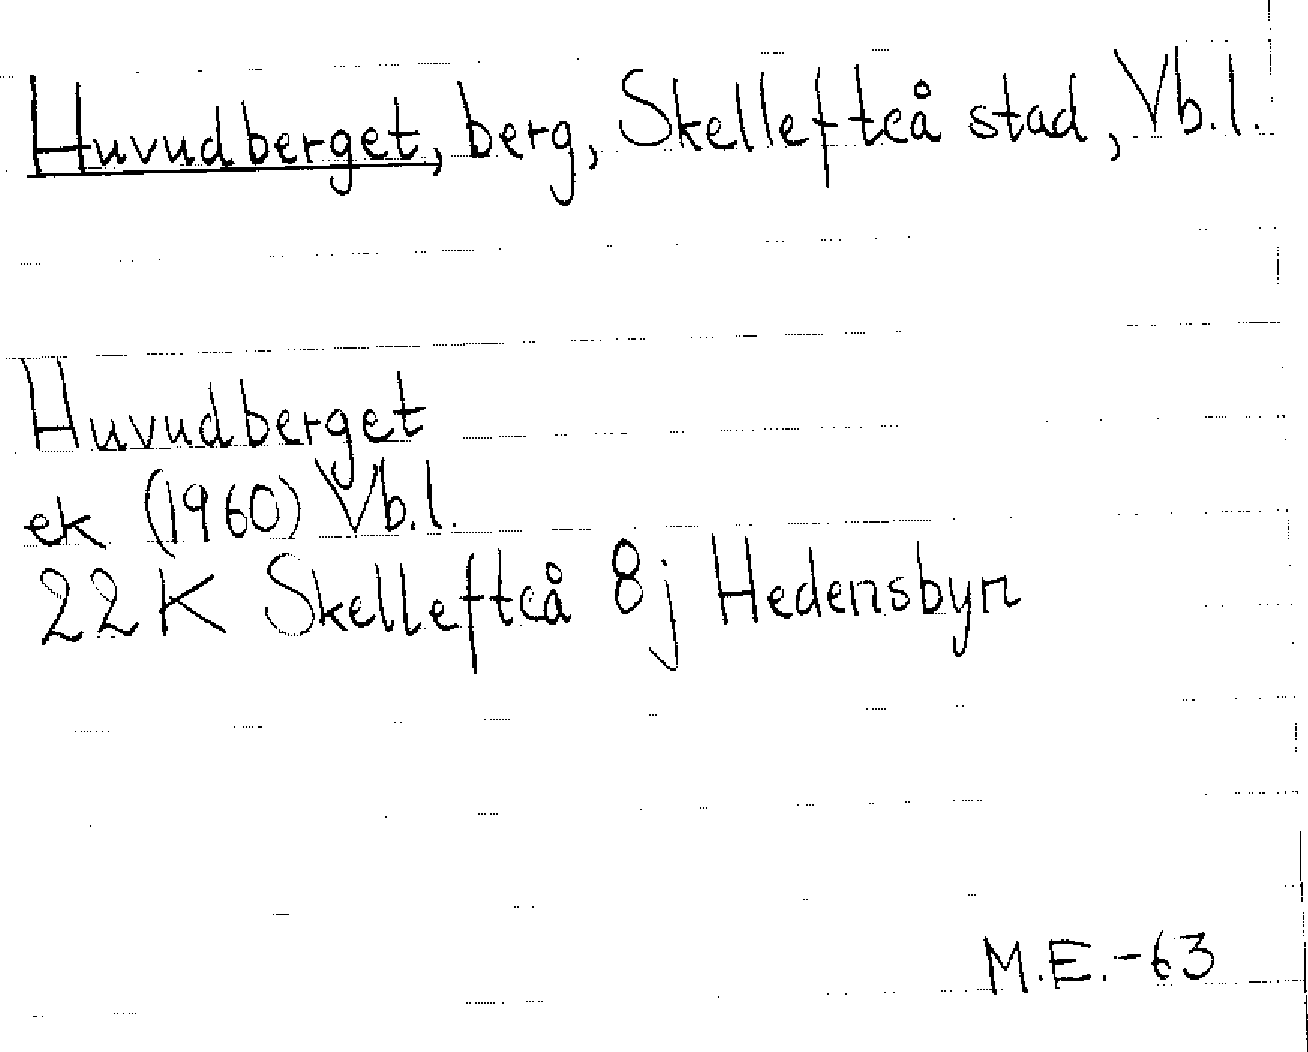 Huvudberget, berg, Skellefteå stad, Vb.l.
Huvudberget
ek (1960) Vb.l.
22 K Skellefteå 8j Hedensbyn
M.E.-63